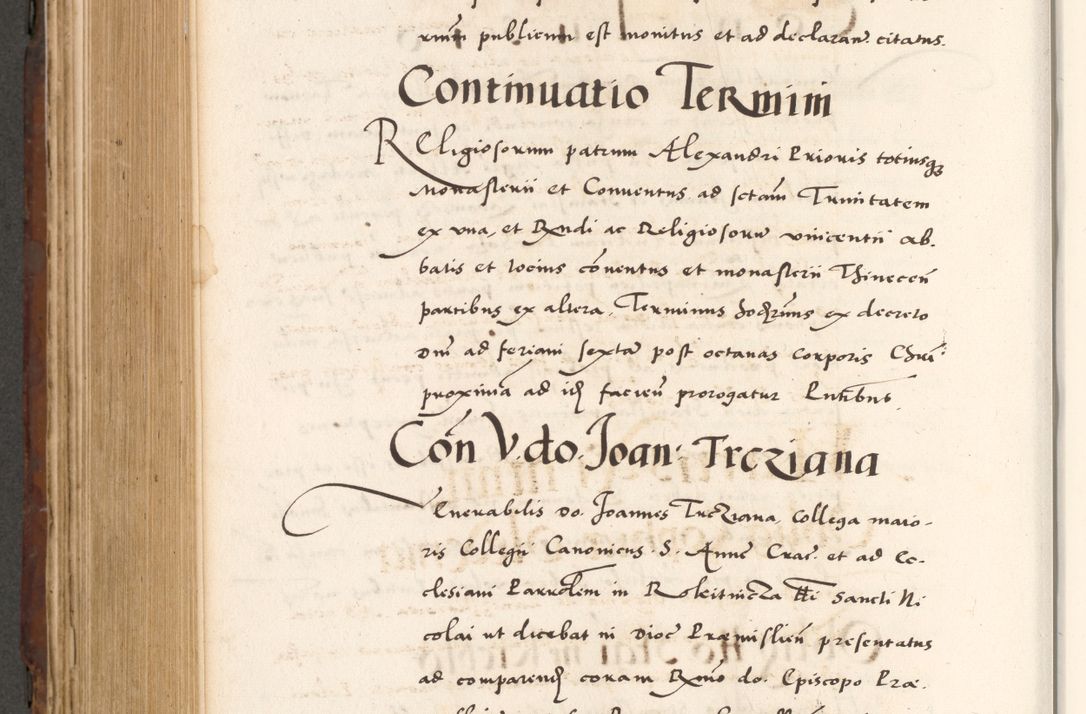 rium publicum est monitus et ad declaran. citatus.
Continuatio Termini
Religiosorum patrum Alexandri Prioris totiusq3
Monasterii et Conventus ad sctam Trinitatem
ex una, et Rndi ac Religiosorum vincentii ab-
batis et tocius coventus et monasterii Thinecen
partibus ex altera, Terminus hodiernus ex decreto
Dni ad feriam sextam post octavas Corporis Chri:
proximam ad id facien prorogatur Putibus
Con V. do. Joan: Trcziana
Venerabilis Do. Joannes Trcziana, Collega maio-
ris Collegii Canonicus S. Anne Crac. et ad Ec-
clesiam Parrochlem in Rokitnicza tti Sancti Ni
colai ut dicebat in Dioc Præmislien presentatus
ad comparend coram Rmo do. Episcopo Præ-